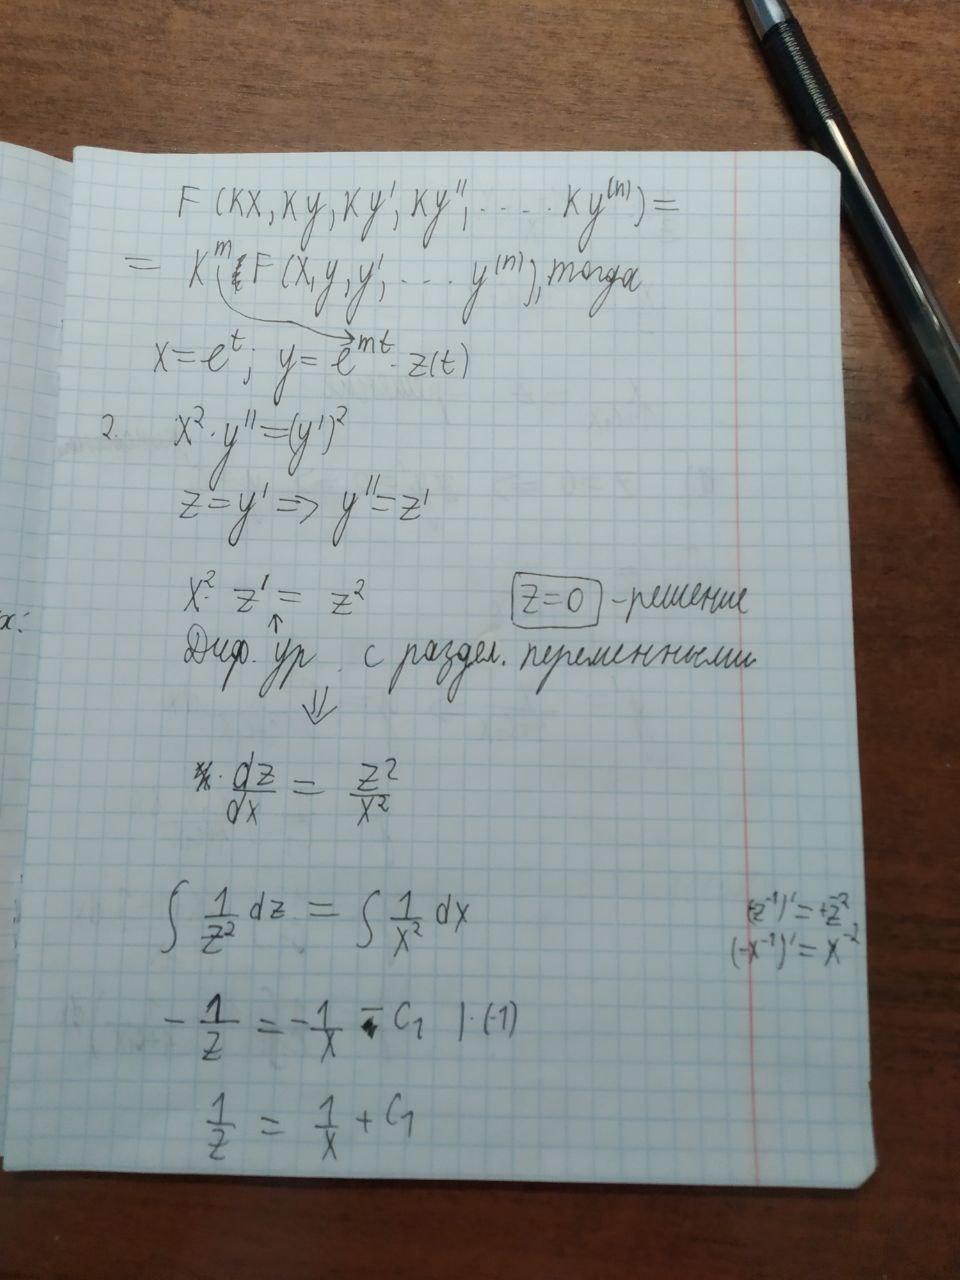 F (kx, ky, ky', ky'', ..... ky⁽ⁿ⁾) =
= k^m F (x, y, y', .... y⁽ⁿ⁾), тогда
x = e^t; y = e^{mt} · z(t)
2. x² · y'' = (y')²
z = y' => y'' = z'
x² · z' = z² z=0 - решение
↑
Диф. ур. с раздел. переменными
⇓
· dz/dx = z²/x²
∫ 1/z² dz = ∫ 1/x² dx
(z⁻¹)' = +z⁻²
(-x⁻¹)' = x⁻²
- 1/z = - 1/x - C₁ |·(-1)
1/z = 1/x + C₁
x: